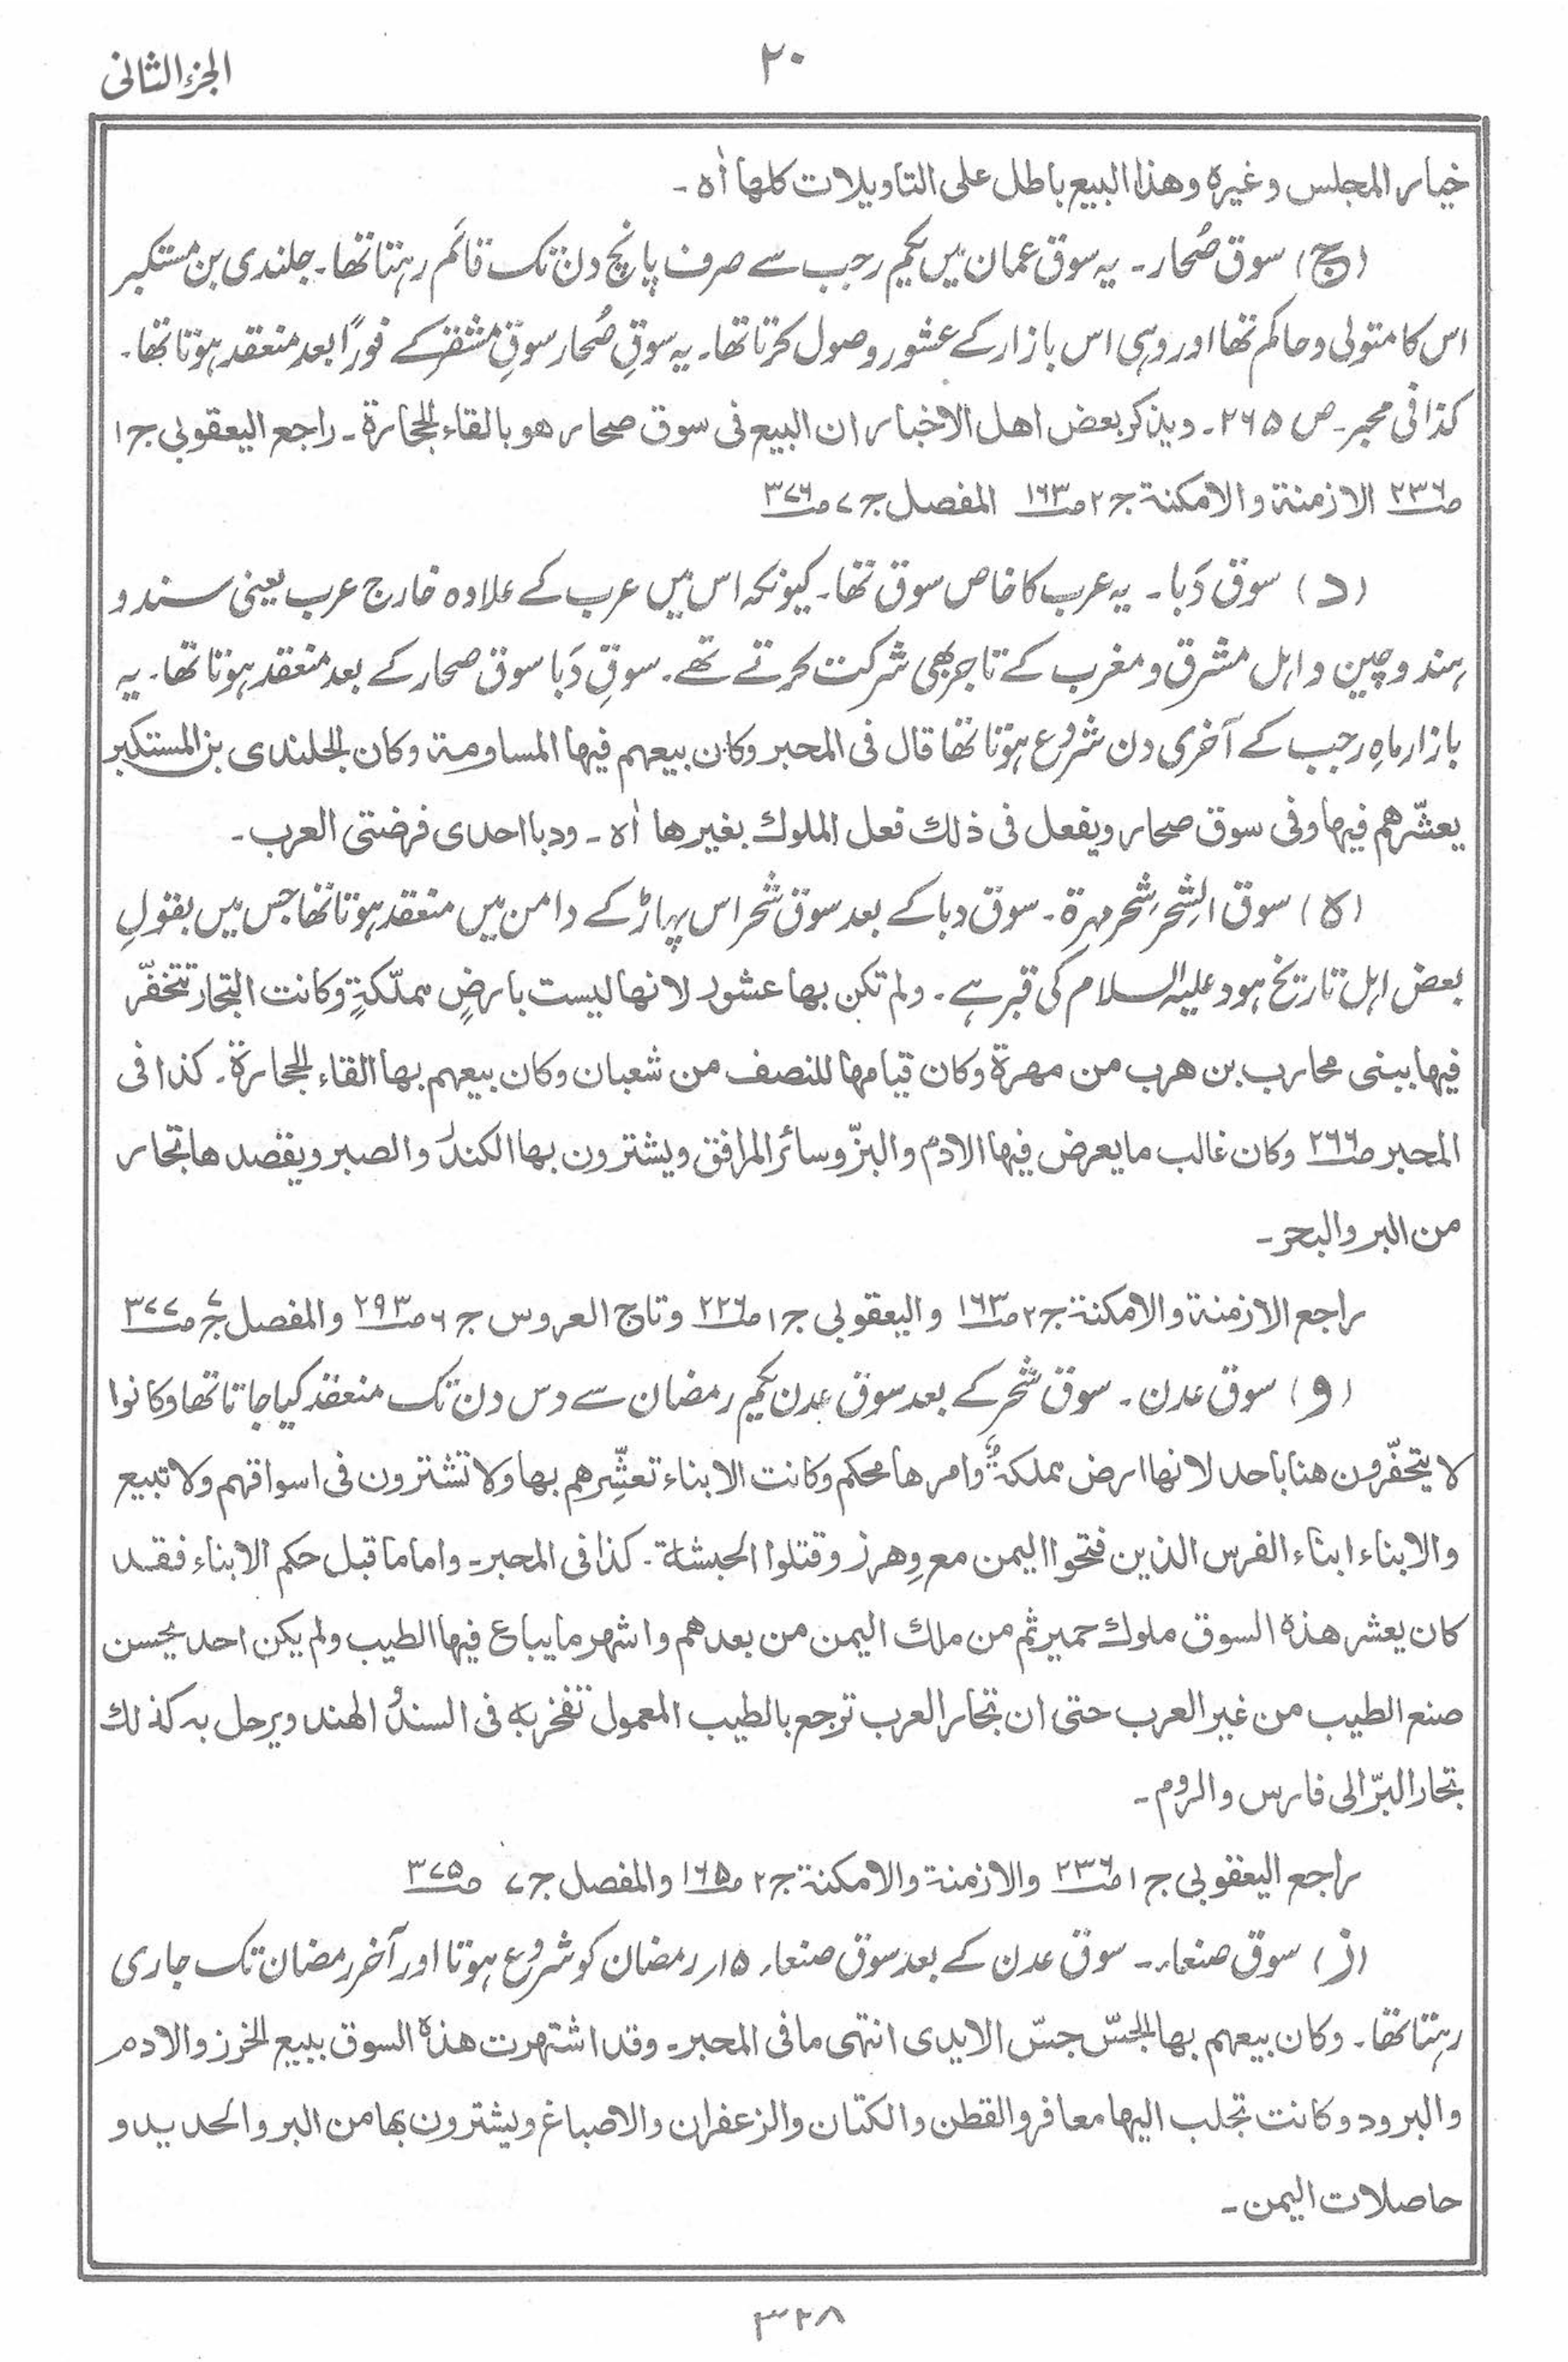 الجزء الثانی
۲۰
خیار المجلس وغیرہ وھذا البیع باطل علی التاویلات کلھا اٰہ ۔
(ج) سوق صُحار۔ یہ سوق عمان میں یکم رجب سے صرف پانچ دن تک قائم رہتا تھا۔ جلندی بن مستکبر
اس کا متولی وحاکم تھا اور وہی اس بازار کے عشور وصول کرتا تھا۔ یہ سوقِ صُحار سوقِ مشقر کے فورًا بعد منعقد ہوتا تھا۔
کذا فی محبر۔ ص ۲۶۵۔ ویذکر بعض اھل الاخبار ان البیع فی سوق صحار ھو بالقاء الحجارۃ۔ راجع الیعقوبی ج۱
ص۲۳۶ الازمنۃ والامکنۃ ج۲ ص۱۶۳ المفصل ج۷ ص۳۷۶
(د) سوق دَبا۔ یہ عرب کا خاص سوق تھا۔ کیونکہ اس میں عرب کے علاوہ خارج عرب یعنی سند و
ہند و چین و اہل مشرق و مغرب کے تاجر بھی شرکت کرتے تھے۔ سوقِ دَبا سوق صحار کے بعد منعقد ہوتا تھا۔ یہ
بازار ماہِ رجب کے آخری دن شروع ہوتا تھا قال فی المحبر وکان بیعہم فیھا المساومۃ وکان الجلندی بن المستکبر
یعشّرھم فیھا وفی سوق صحار ویفعل فی ذلک فعل الملوک بغیرھا اٰہ ۔ ودبا احدی فرضتی العرب ۔
(ہ) سوق الشِحْر شحر مہرۃ۔ سوق دبا کے بعد سوق شحر اس پہاڑ کے دامن میں منعقد ہوتا تھا جس میں بقولِ
بعض اہل تاریخ ہود علیہ السلام کی قبر ہے۔ ولم تکن بھا عشور لانھا لیست بارضِ مملّکۃٍ وکانت التجار تتخفّر
فیھا ببنی محارب بن ھرب من مھرۃ وکان قیامھا للنصف من شعبان وکان بیعہم بھا القاء الحجارۃ۔ کذا فی
المحبر ص۲۶۶ وکان غالب ما یعرض فیھا الادم والبزّ وسائر المرافق ویشترون بھا الکندر والصبر ویقصدھا تجار
من البر والبحر ۔
راجع الازمنۃ والامکنۃ ج۲ ص۱۶۳ والیعقوبی ج۱ ص۲۲۶ وتاج العروس ج۶ ص۲۹۳ والمفصل ج۷ ص۳۷۷
(و) سوق عدن۔ سوق شحر کے بعد سوق عدن یکم رمضان سے دس دن تک منعقد کیا جاتا تھا وکانوا
لا یتخفّرون ھنا باحد لانھا ارض مملکۃٍ وامرھا محکم وکانت الابناء تعشّرھم بھا ولا تشترون فی اسواقہم ولا تبیع
والابناء ابناء الفرس الذین فتحوا الیمن مع وِھرز وقتلوا الحبشۃ۔ کذا فی المحبر۔ واما ما قبل حکم الابناء فقد
کان یعشر ھذہ السوق ملوک حمیر ثم من ملک الیمن من بعدھم واشھر ما یباع فیھا الطیب ولم یکن احد یحسن
صنع الطیب من غیر العرب حتی ان تجار العرب ترجع بالطیب المعمول تفخر بہ فی السند و الھند ویرحل بہ کذلک
تجار البرّ الی فارس والروم ۔
راجع الیعقوبی ج۱ ص۲۳۶ والازمنۃ والامکنۃ ج۲ ص۱۶۵ والمفصل ج۷ ص۳۷۵
(ز) سوق صنعاء۔ سوق عدن کے بعد سوق صنعاء ۱۵ رمضان کو شروع ہوتا اور آخر رمضان تک جاری
رہتا تھا۔ وکان بیعہم بھا الجسّ جسّ الایدی انتھی ما فی المحبر۔ وقد اشتھرت ھذہ السوق ببیع الخرز والادم
والبرود وکانت تجلب الیھا معافر والقطن والکتان والزعفران والاصباغ ویشترون بھا من البر والحدید و
حاصلات الیمن ۔
۳۲۸